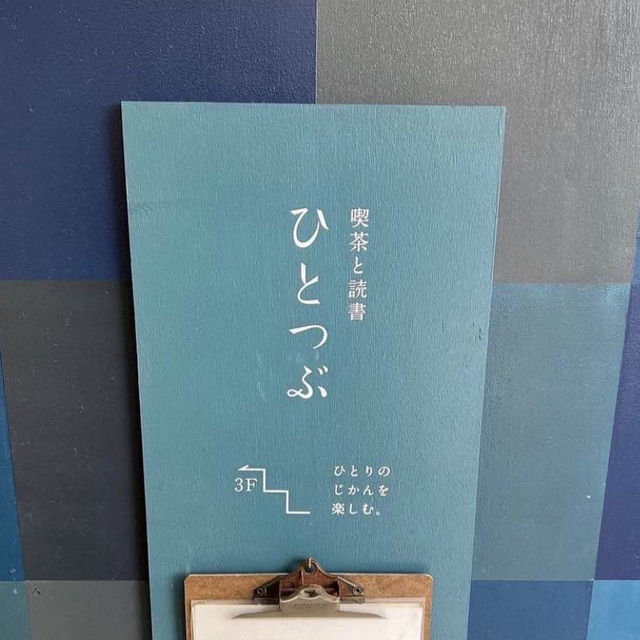 喫茶と読書
ひとつぶ
3F
ひとりの
じかんを
楽しむ。